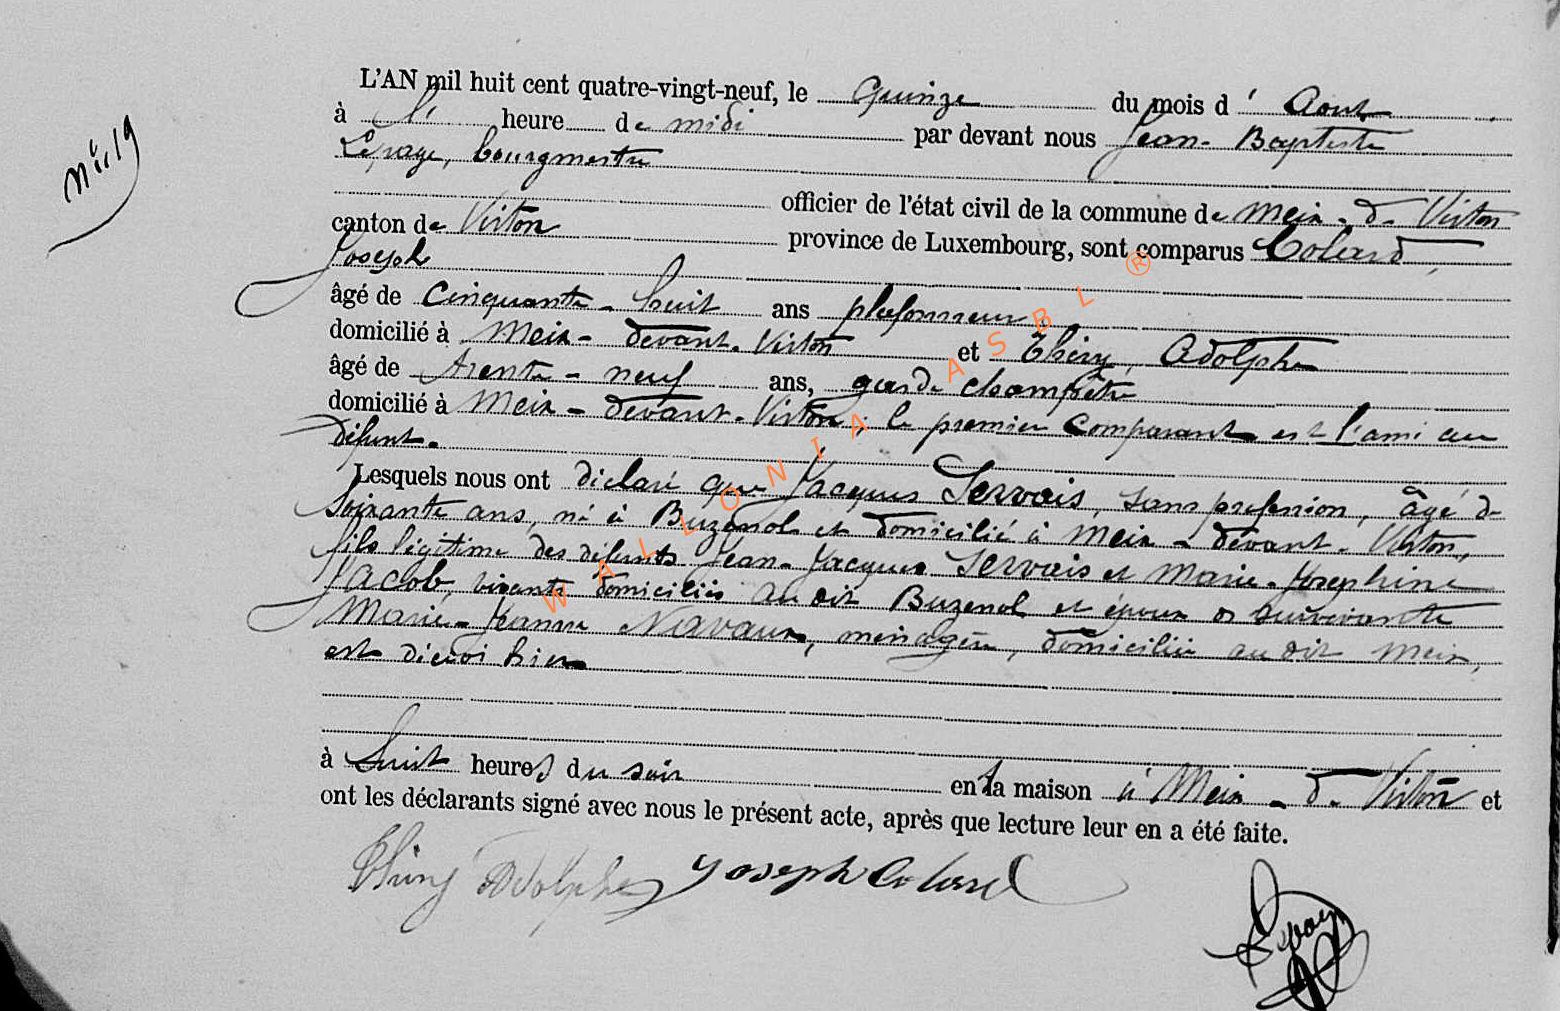 L'AN mil huit cent quatre-vingt-neuf, le quinze du mois d' Aout
à l' heure de midi par devant nous Jean-Baptiste
Lepage, bourgmestre
officier de l'état civil de la commune de Meix-d-Virton
canton de Virton province de Luxembourg, sont comparus Colard,
Joseph
âgé de cinquante-huit ans plafonneur,
domicilié à Meix-devant-Virton et Théry, Adolphe
âgé de trente-neuf ans, garde champêtre
domicilié à Meix-devant-Virton, le premier comparant est l'ami au
défunt.
Lesquels nous ont déclaré que Jacques Servais, sans profession, âgé de
soixante ans, né à Buzenol et domicilié à Meix-devant-Virton,
fils légitime des défunts Jean-Jacques Servais et Marie-Josephine
Jacob, vivants domiciliés au dit Buzenol et époux survivante
Marie-Jeanne Navaux, ménagère, domiciliée au dit Meix,
est décédé hier
à huit heures du soir en la maison à Meix-d-Virton et
ont les déclarants signé avec nous le présent acte, après que lecture leur en a été faite.
Théry Adolphe Joseph Colard
Lepage
N° 19
WALLONIA ASBL ®